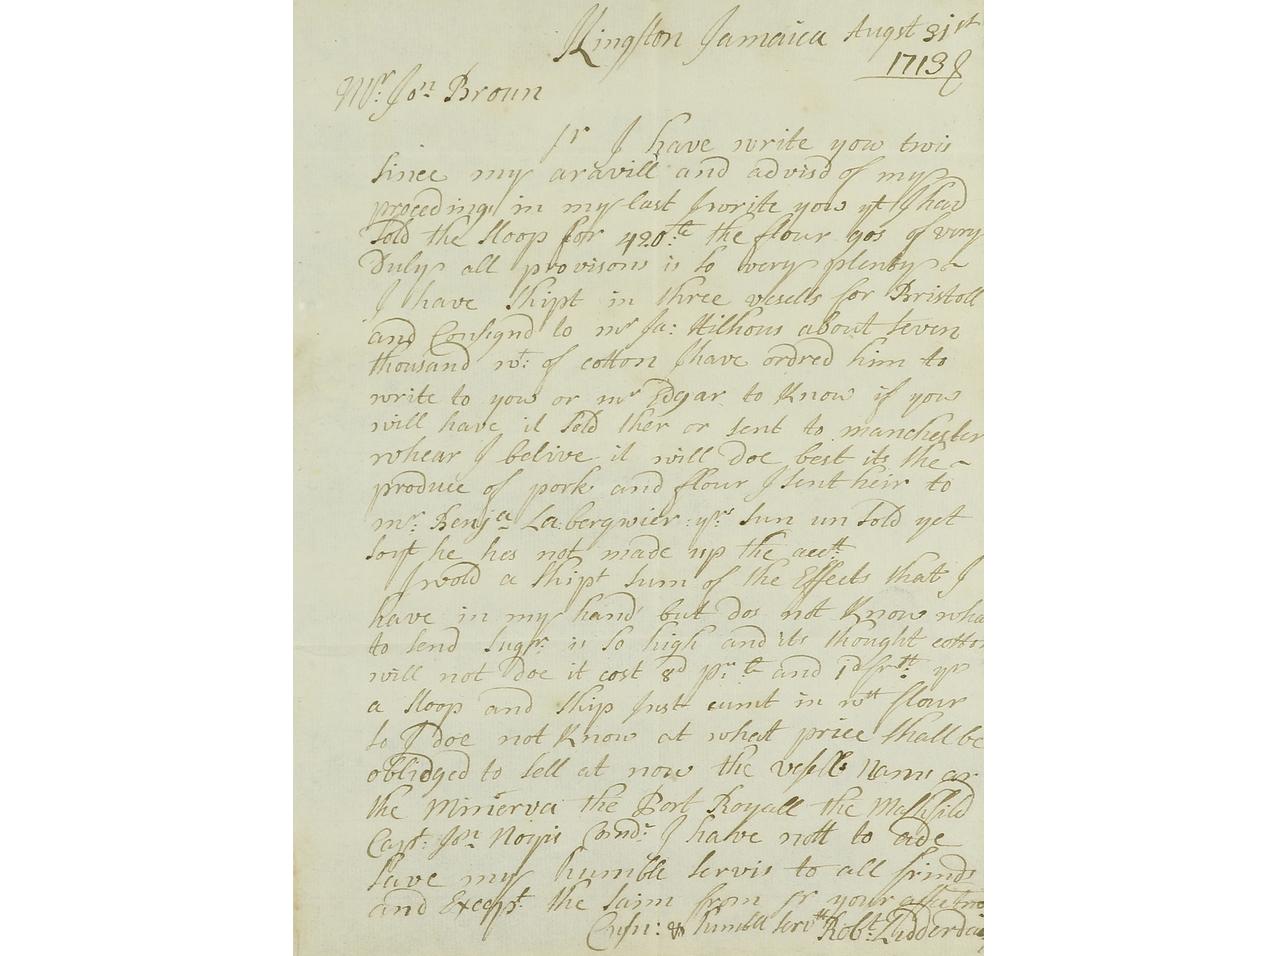 Kingston Jamaica Augst 31st
1713
Mr: Jon Broun
Sr I have write you twis
since my aravill and advisd of my
proceedings in my last I write you yt I had
sold the sloop for 420: the flour gos of very
Duly all provisons is so very plenty
I have shipt in three vesells for Bristoll
and Consignd to mr Ja: Hilhous about seven
thousand wt: of cotton I have ordred him to
write to you or mr Edgar to Know if you
will have it sold ther or sent to manchester
whear I belive it will doe best its the
produce of pork and flour I sent heir to
mr: Benja Labergwier yr sun un sold yet
he hes not made up the acctt
I wold a shipt sum of the Effects that I
have in my hand but dos not Know wha
to send sugr is so high and its thought cotton
will not doe it cost 8d pr and 1d
a sloop and ship Just cumt in wtt flour
so I doe not Know at what price shall be
oblidged to sell at now the vessells Nams ar
the Minerva the Port Royall the
Capt: Jon Comdr: I have nott to ade
save my humble servis to all frinds
and Except the saim from Sr your
Cusn: & humbll servtt Robt: